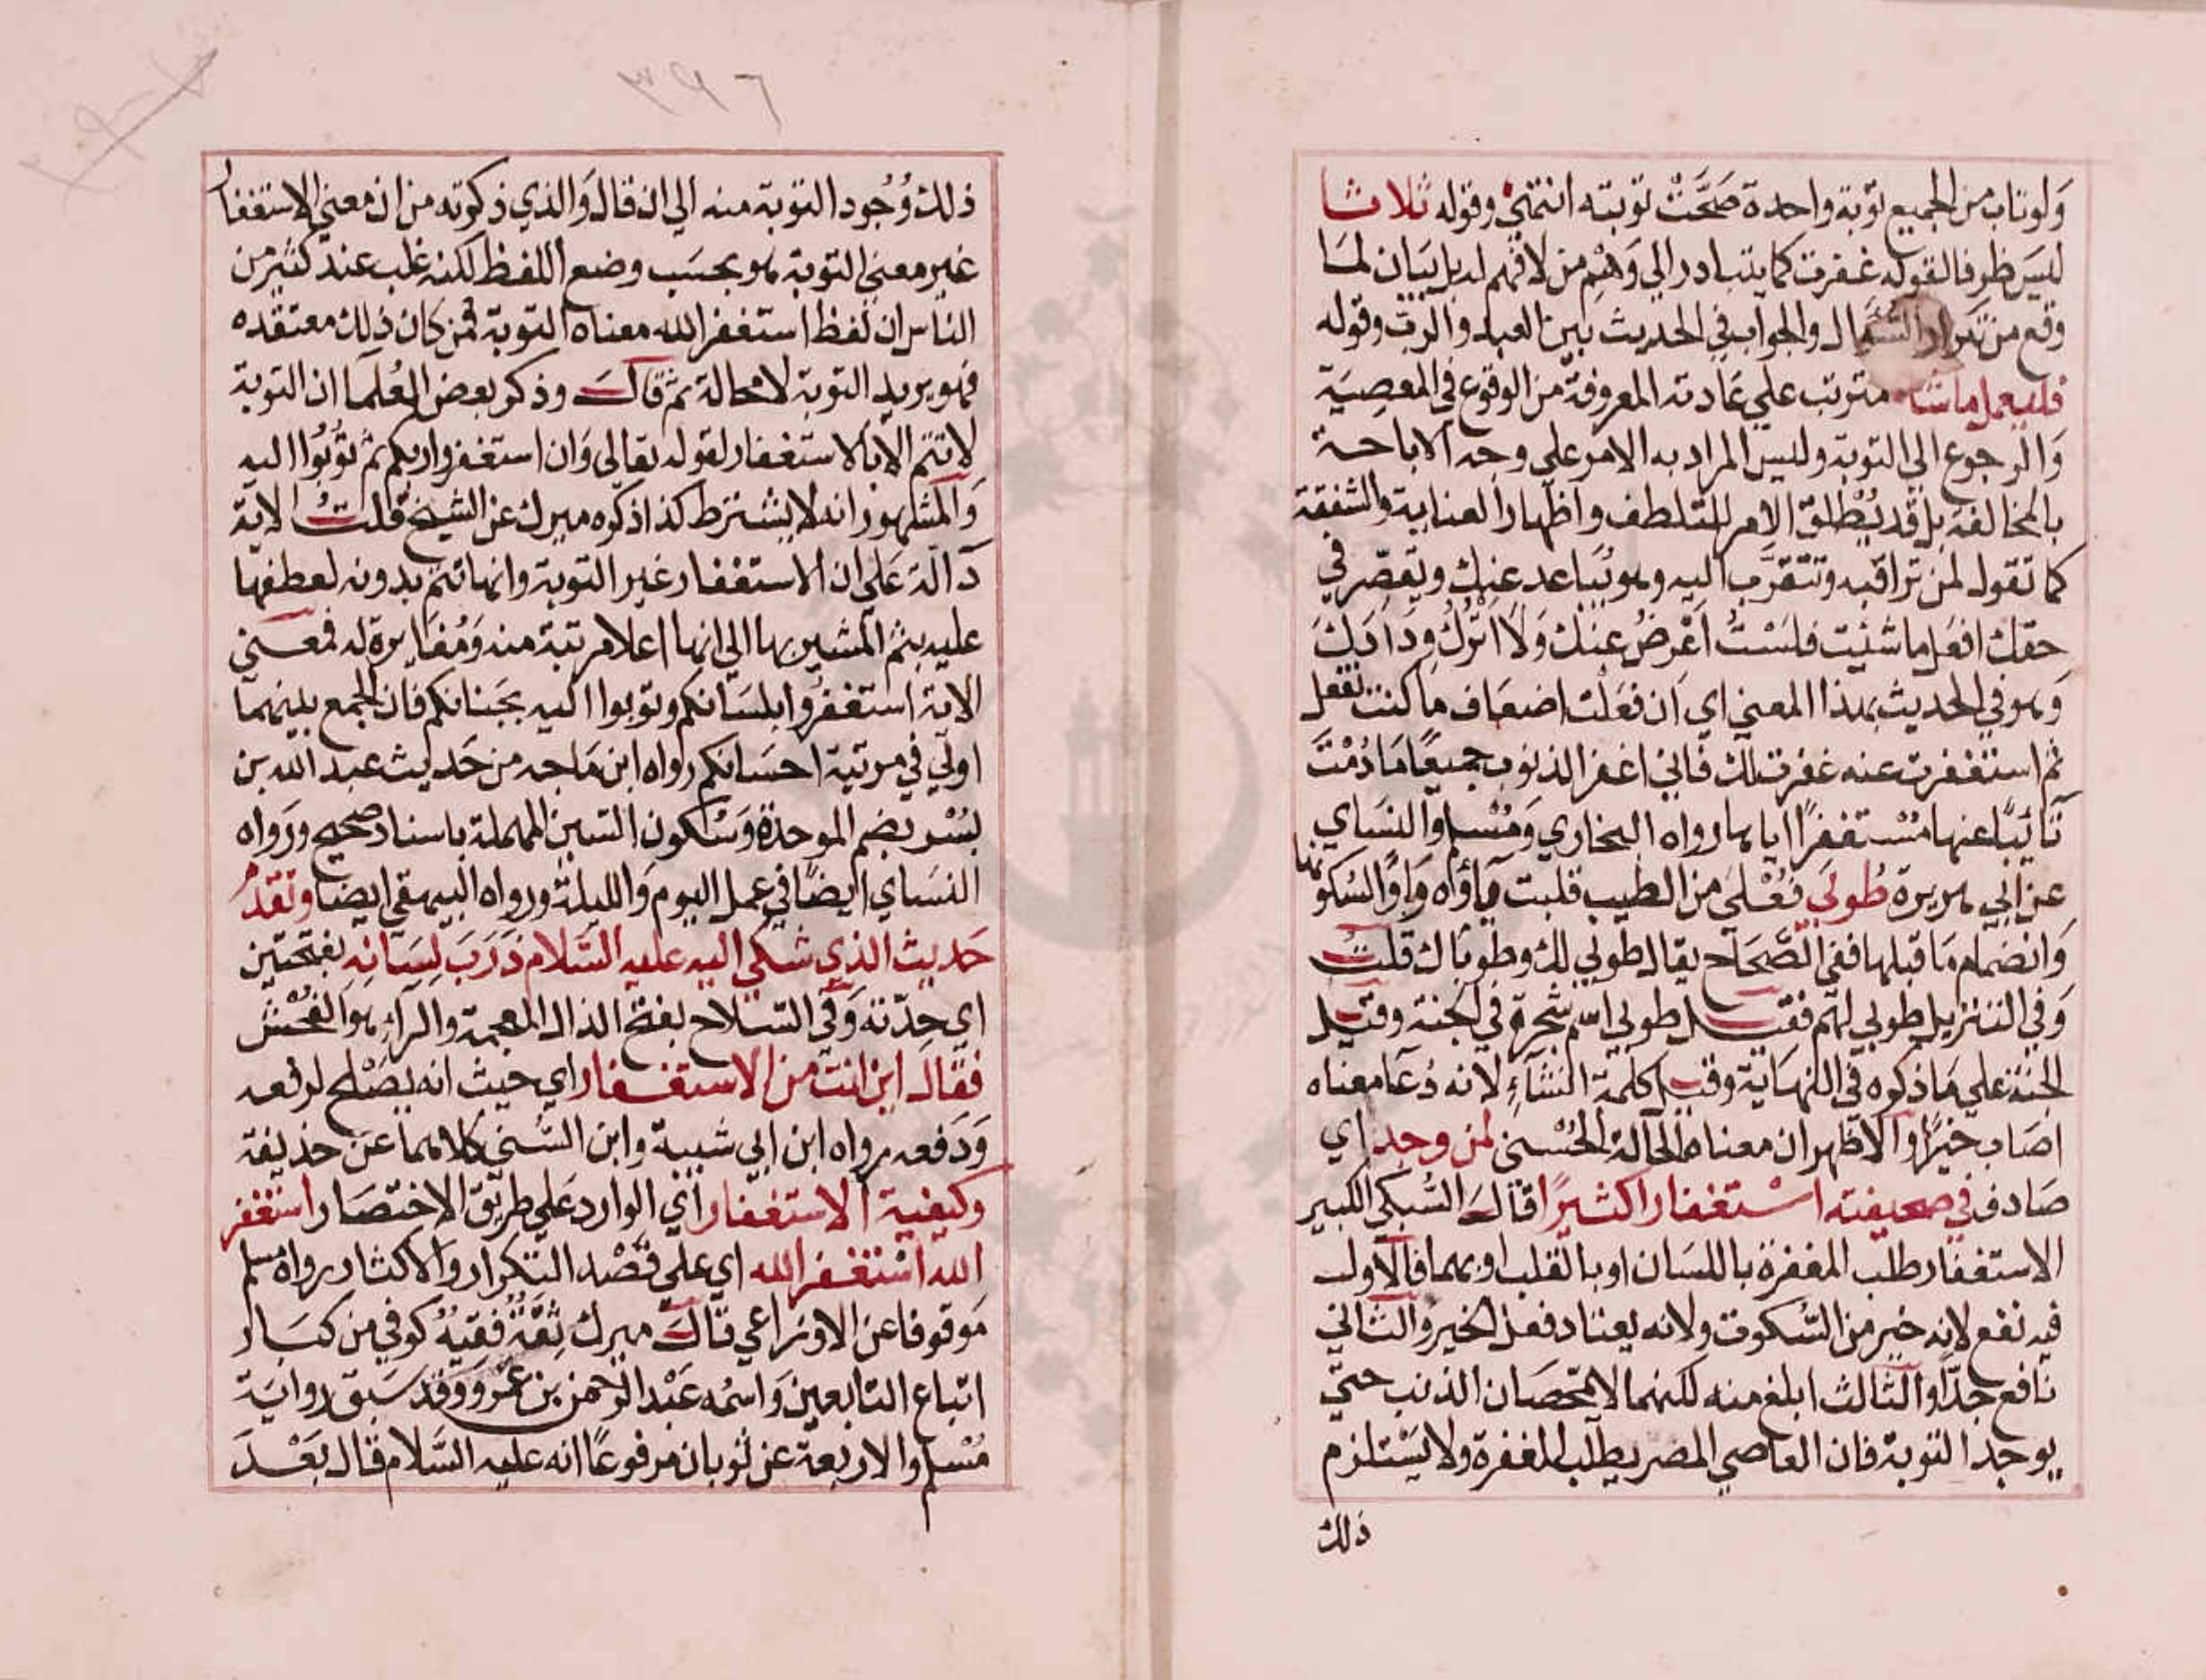 ولو تاب من الجميع توبة واحدة صَحَّتْ توبته انتهى وقوله ثلاثا
ليس ظرفا لقوله غفرت كما يتبادر الي وَهْمِ من لا فهم له بل بيان لما
وقع من تكرار السُّؤال والجواب في الحديث بين العبد والرب وقوله
فليعمل ما شاء مترتب علي عَادته المعروفة من الوقوع في المعصِيَة
وَالرجوع الي التوبة وليس المراد به الامر علي وجه الاباحة
بالمخالفة بل قد يُطْلق الامر للتلطف واظهار العناية والشفقة
كما تقول لمن تراقبه وتتقرَّب اليه وهو يُبَاعد عنك ويقصّر في
حقك افعل ما شئت فلسْتُ اَعْرضُ عنك وَلَا اترُك ودَادك
وَهو في الحديث بهذا المعني اي ان فعَلْت اضعَاف ما كنت تفعل
ثم استغفرت عنه غفرت لك فاني اغفر الذنوب جميعًا مَا دُمْتَ
تَائبًا عنها مُسْتغفرًا اياها رواه البخاري وَمُسْلم والنسَاي
عن ابي هريرة طُوبَي فُعْلَي من الطيب قلبت يَاؤه وَاوًا لسُكونها
وَانضمام مَا قبلها ففي الصَّحَاح يقال طوبي لك وطوبَاك قلت
وَفي التنزيل طوبي لهم فقيل طوبي اسم شجَرة في الجنة وقيل
الجنة علي مَا ذكره في النهايَة وقيل كلمة انشاءِ لانه دُعَا معناه
اصَاب خيرًا والاظهر ان معناه الحَالة الحُسْني لمن وجد اي
صَادف في صحيفته اسْتغفارا كثيرًا قَالَ السُّبكي الكبير
الاستغفار طلب المغفرة باللسَان او بالقلب او بهما فالاول
فيه نفع لانه خير من السُّكوت ولانه يعتاد فعل الخير والثاني
نافع جدًّا والثالث ابلغ منه لكنهما لا يمحّصَان الذنب حتي
يوجد التوبة فان العاصي المصر يطلب المغفرة ولا يسَتلزم
ذلك
٣٩٦
ذلك وُجُود التوبة منه الي ان قال وَالذي ذكرته من ان معني الاستغفار
غير معني التوبة هو بحسَب وضع اللفظ لكنه غلب عند كثير من
الناس ان لفظ استغفر الله معناه التوبة فمن كان ذلك معتقده
فهو يريد التوبة لا محالة ثم قَال وذكر بعض العُلمَا ان التوبة
لا تتم الا بالاستغفار لقوله تعالي وَان استغفروا ربكم ثم تُوبُوا اليه
وَالمشهور انه لا يشترط كذا ذكره ميرك عن الشيخ قلتُ الاية
دَالّة عَلي ان الاستغفار غير التوبة وانها تتم بدونه لعطفها
عليه بثم المشير بها الي انها اعلا مرتبة منه وَمُغَايرة له فمعني
الاية استغفروا بلسَانكم وتوبوا اليه بجَنانكم فان الجمع بينهما
اولي في مرتبة احسَانكم رواه ابن مَاجه من حَديث عبد الله بن
بُسْر بضم الموحدة وَسُكون السّين المهملة باسناد صحيح ورَوَاه
النسَاي ايضًا في عمل اليوم وَالليلة ورواه البيهقي ايضًا وتقدم
حَديث الذي شكي اليه عليه السَّلام ذَرَبَ لسَانه بفتحتين
اي حِدّته وَفي السّلاح بفتح الذال المعجمة والرآء هو الفُحْش
فقال اين انت من الاستغفار اي حيث انه يصْلح لرفعه
وَدَفعه رواه ابن ابي شيبة وابن السُّني كلاهما عن حذيفة
وكيفية الاستغفار اي الوارد عَلي طريق الاختصَار استغفر
الله اسْتغفر الله اي علي قصْد التكرار والاكثار رواه مسلم
مَوقوفا عن الاوزاعي قَال ميرك ثِقَةٌ فقيهٌ كوفي من كبَار
اتباع التابعين وَاسمُه عَبْد الرحمن بن عَمْرو وقد سَبق روايَة
مُسْلم والاربعة عن ثوبان مرفوعًا انه عليه السَّلام قال بَعْدَ